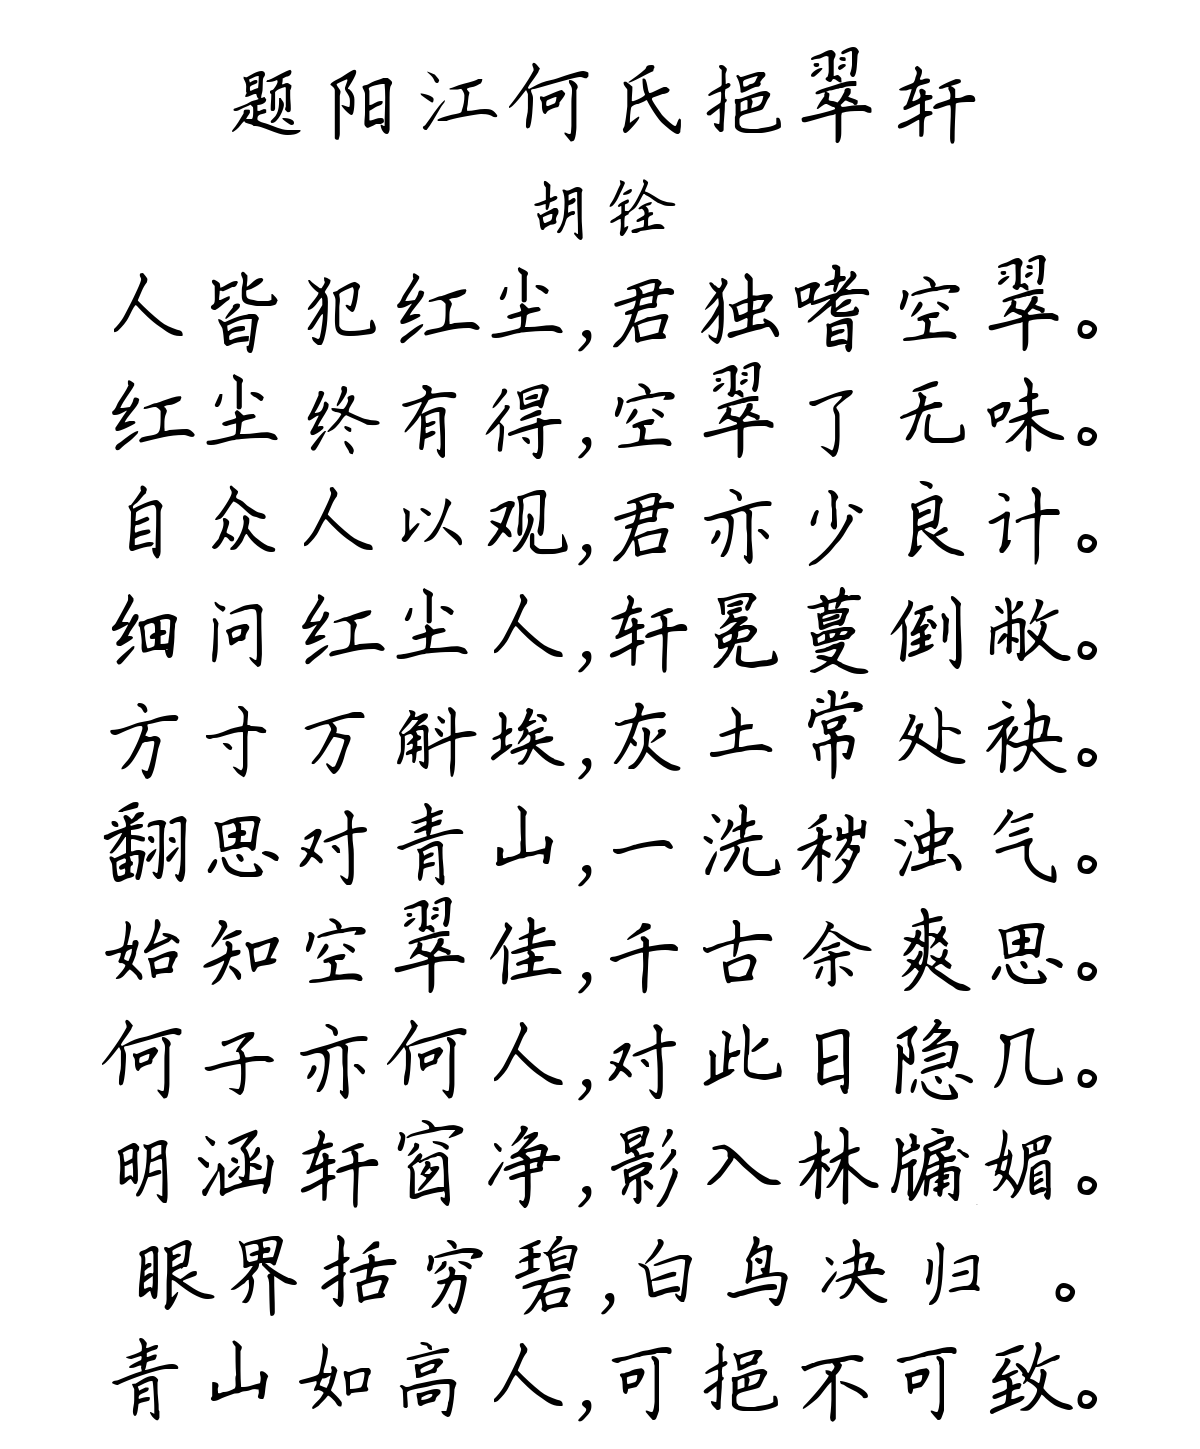 题阳江何氏挹翠轩
胡铨
人皆犯红尘,君独嗜空翠。
红尘终有得,空翠了无味。
自众人以观,君亦少良计。
细问红尘人,轩冕蔓倒敝。
方寸万斛埃,灰土常处袂。
翻思对青山,一洗秽浊气。
始知空翠佳,千古余爽思。
何子亦何人,对此日隐几。
明涵轩窗净,影入林牖媚。
眼界括穷碧,白鸟决归 。
青山如高人,可挹不可致。